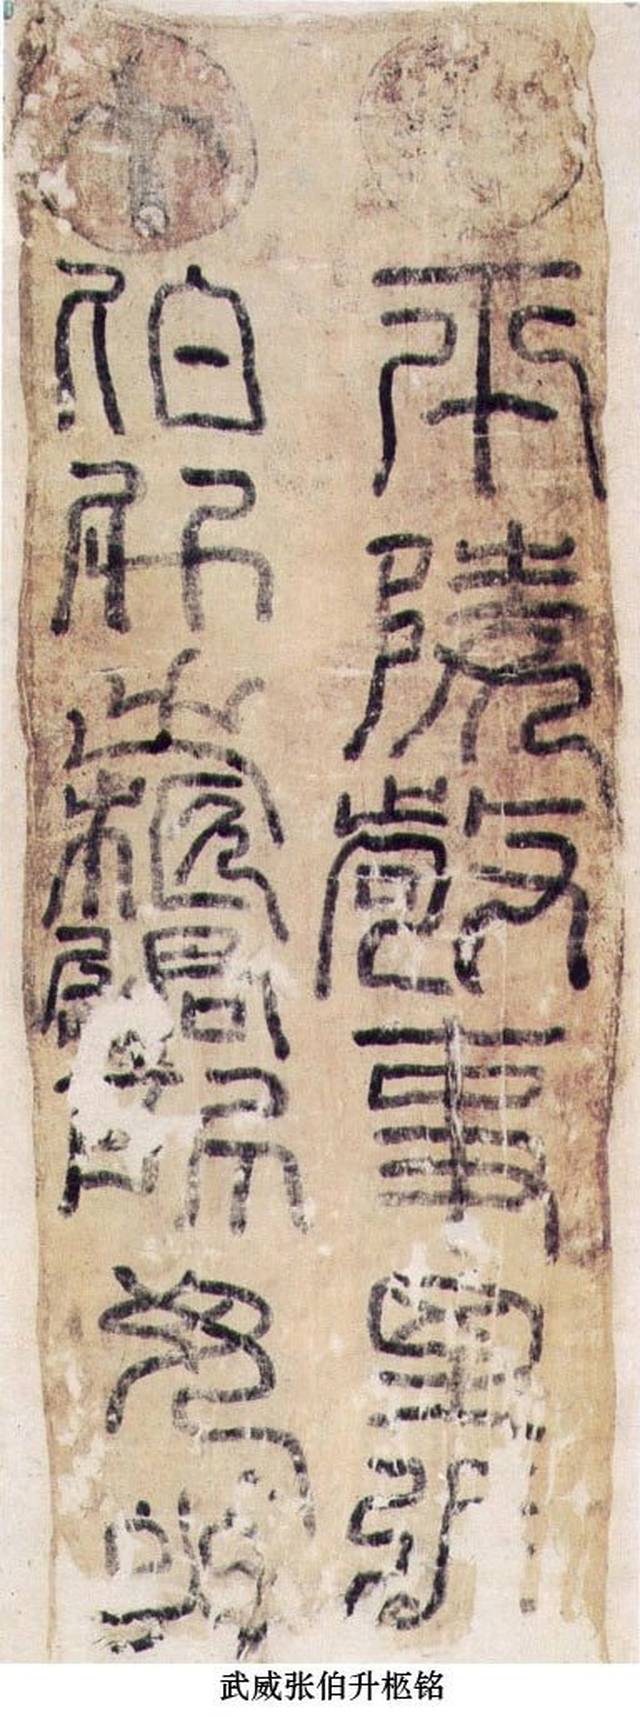 平陵敬事里張
伯升之柩過所毋哭
武威张伯升柩铭